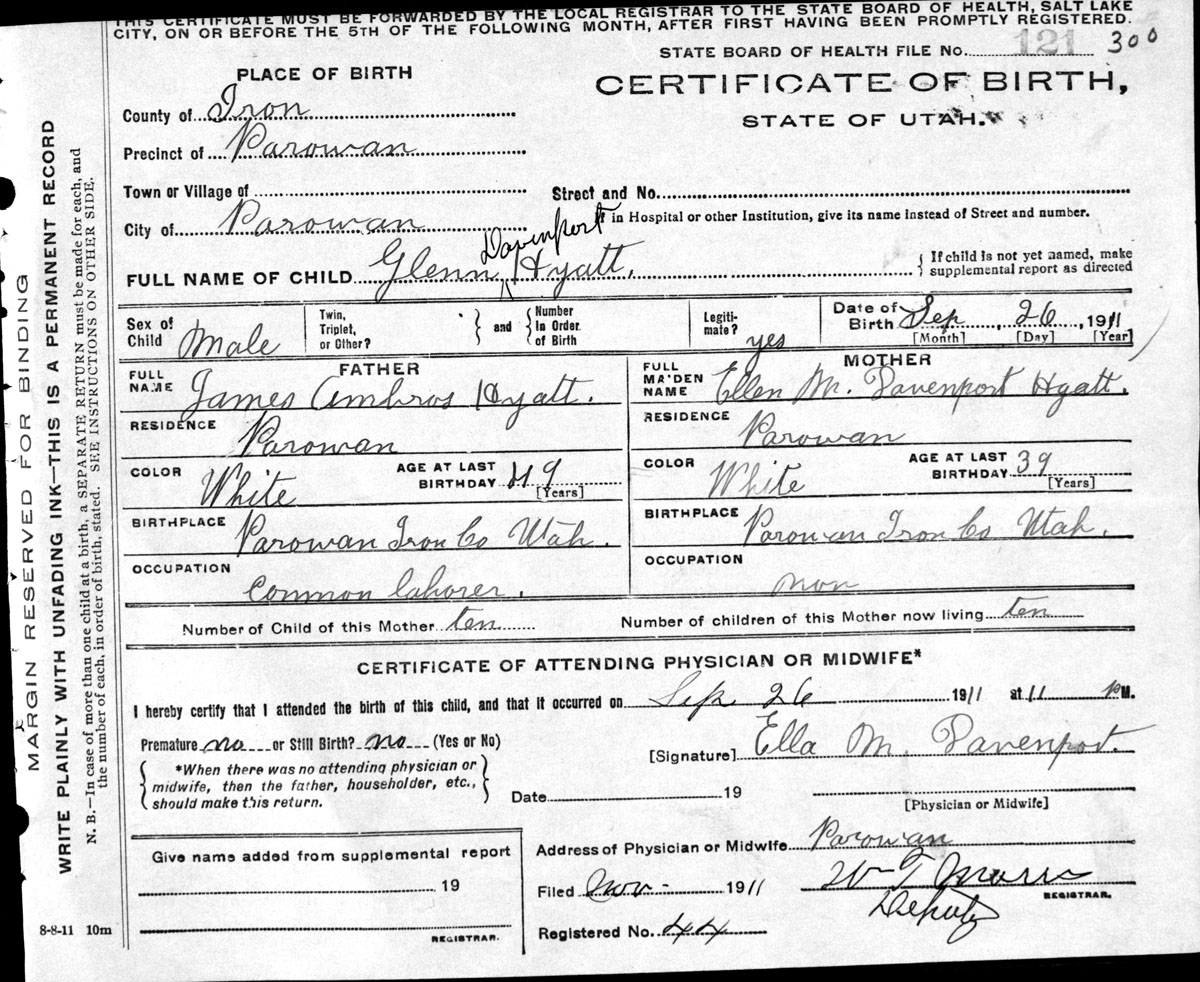 THIS CERTIFICATE MUST BE FORWARDED BY THE LOCAL REGISTRAR TO THE STATE BOARD OF HEALTH, SALT LAKE
CITY, ON OR BEFORE THE 5TH OF THE FOLLOWING MONTH, AFTER FIRST HAVING BEEN PROMPTLY REGISTERED.
STATE BOARD OF HEALTH FILE No. 121 300
PLACE OF BIRTH
CERTIFICATE OF BIRTH,
STATE OF UTAH.
County of Iron
Precinct of Parowan
Town or Village of Street and No.
City of Parowan If in Hospital or other Institution, give its name instead of Street and number.
Davenport
FULL NAME OF CHILD Glenn Hyatt. { If child is not yet named, make
supplemental report as directed
Sex of Child Male
Twin, Triplet, or Other? } and { Number In Order. of Birth
Legiti-mate? yes
Date of Birth Sep, 26, 1911
[Month] [Day] [Year]
FATHER
FULL NAME James Ambros Hyatt.
RESIDENCE Parowan
COLOR White AGE AT LAST BIRTHDAY 49
[Years]
BIRTHPLACE Parowan Iron Co Utah.
OCCUPATION Common laborer.
MOTHER
FULL MAIDEN NAME Ellen M. Davenport Hyatt.
RESIDENCE Parowan
COLOR White AGE AT LAST BIRTHDAY 39
[Years]
BIRTHPLACE Parowan Iron Co Utah.
OCCUPATION non
Number of Child of this Mother ten Number of children of this Mother now living ten
CERTIFICATE OF ATTENDING PHYSICIAN OR MIDWIFE*
I hereby certify that I attended the birth of this child, and that it occurred on Sep. 26 1911 at 11 PM.
Premature no or Still Birth? no (Yes or No)
[Signature] Ella M. Davenport.
{ *When there was no attending physician or
midwife, then the father, householder, etc.,
should make this return. }
Date 19
[Physician or Midwife]
Give name added from supplemental report
19
REGISTRAR.
Address of Physician or Midwife Parowan
Filed Nov - 1911 W T Morris
REGISTRAR.
Deputy
Registered No. 44
8-8-11 10m
MARGIN RESERVED FOR BINDING
WRITE PLAINLY WITH UNFADING INK—THIS IS A PERMANENT RECORD
N. B.—In case of more than one child at a birth, a SEPARATE RETURN must be made for each, and
the number of each, in order of birth, stated. SEE INSTRUCTIONS ON OTHER SIDE.